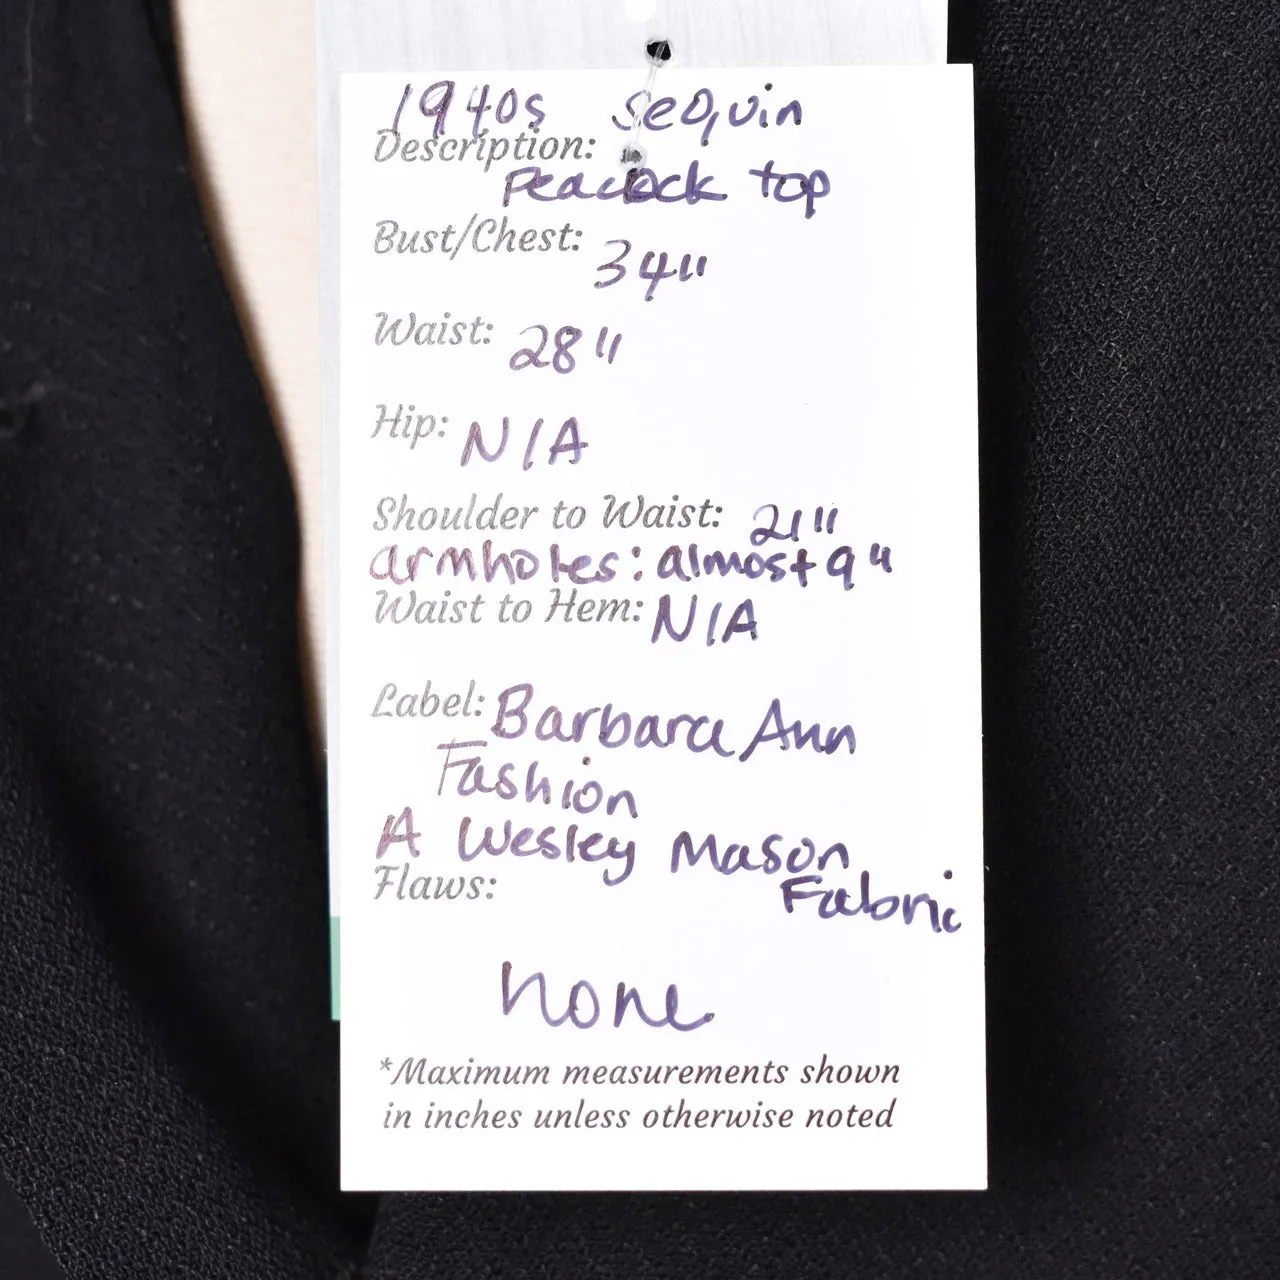 1940s sequin
Description:
Peacock top
Bust/Chest: 34"
Waist: 28"
Hip: N/A
Shoulder to Waist: 21"
armholes: almost 9"
Waist to Hem: N/A
Label: Barbara Ann
Fashion
A Wesley Mason
Flaws: Fabric
none
*Maximum measurements shown
in inches unless otherwise noted